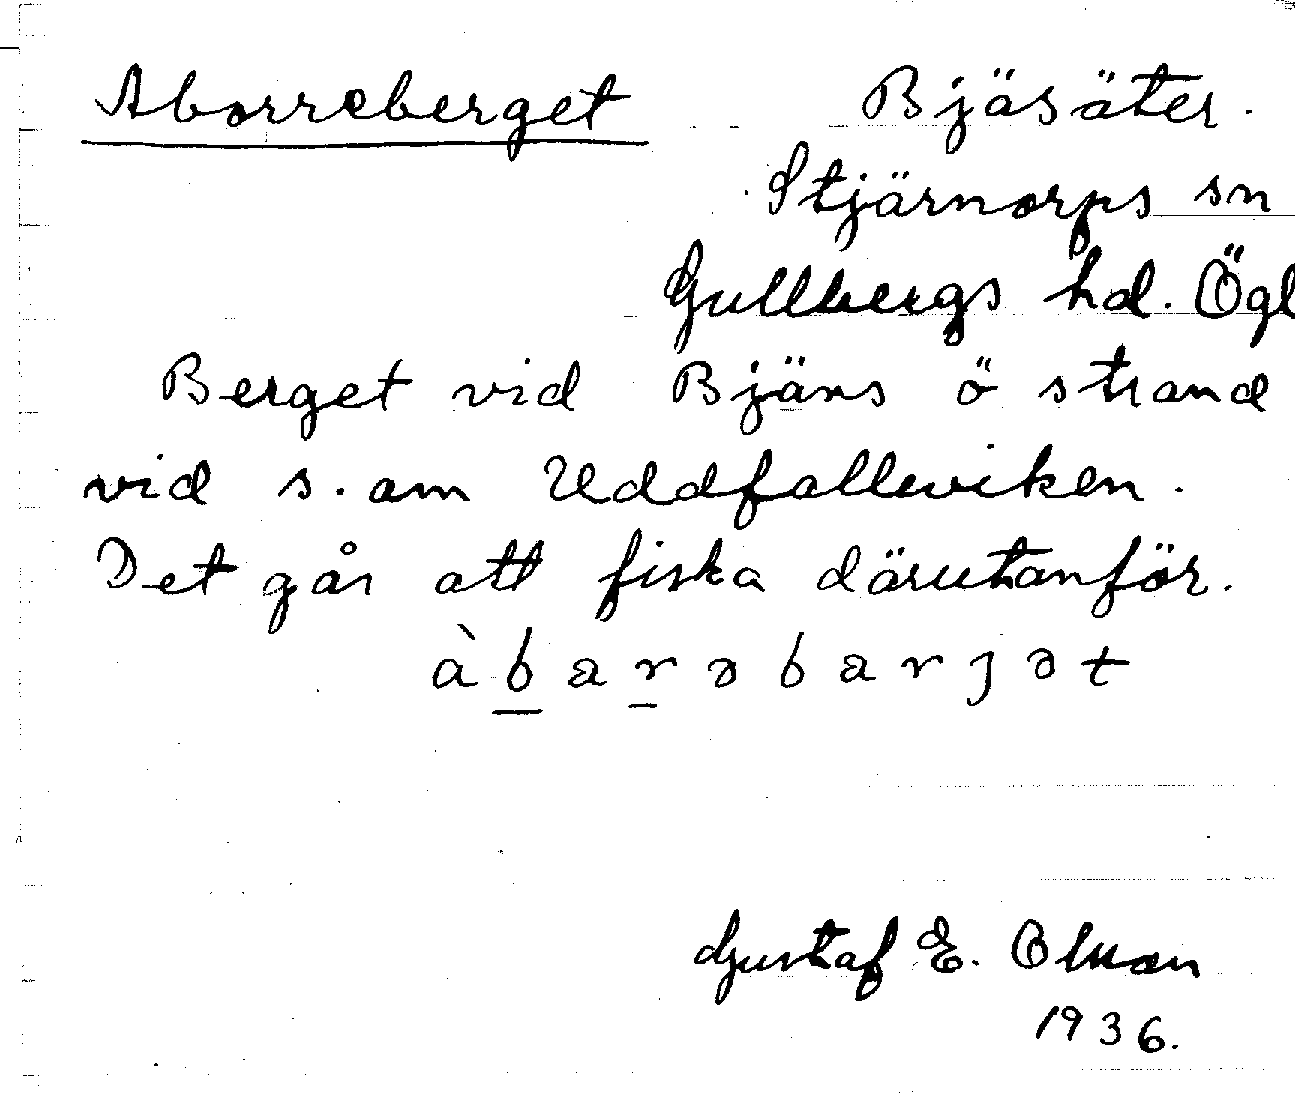 Aborreberget Bjäsäter.
Stjärnorps sn
Gullbergs hd. Ögl
Berget vid Bjäns ö strand
vid s.om Uddfalleviken.
Det går att fiska därutanför.
àbarəbarjət
Gustaf E. Olson
1936.